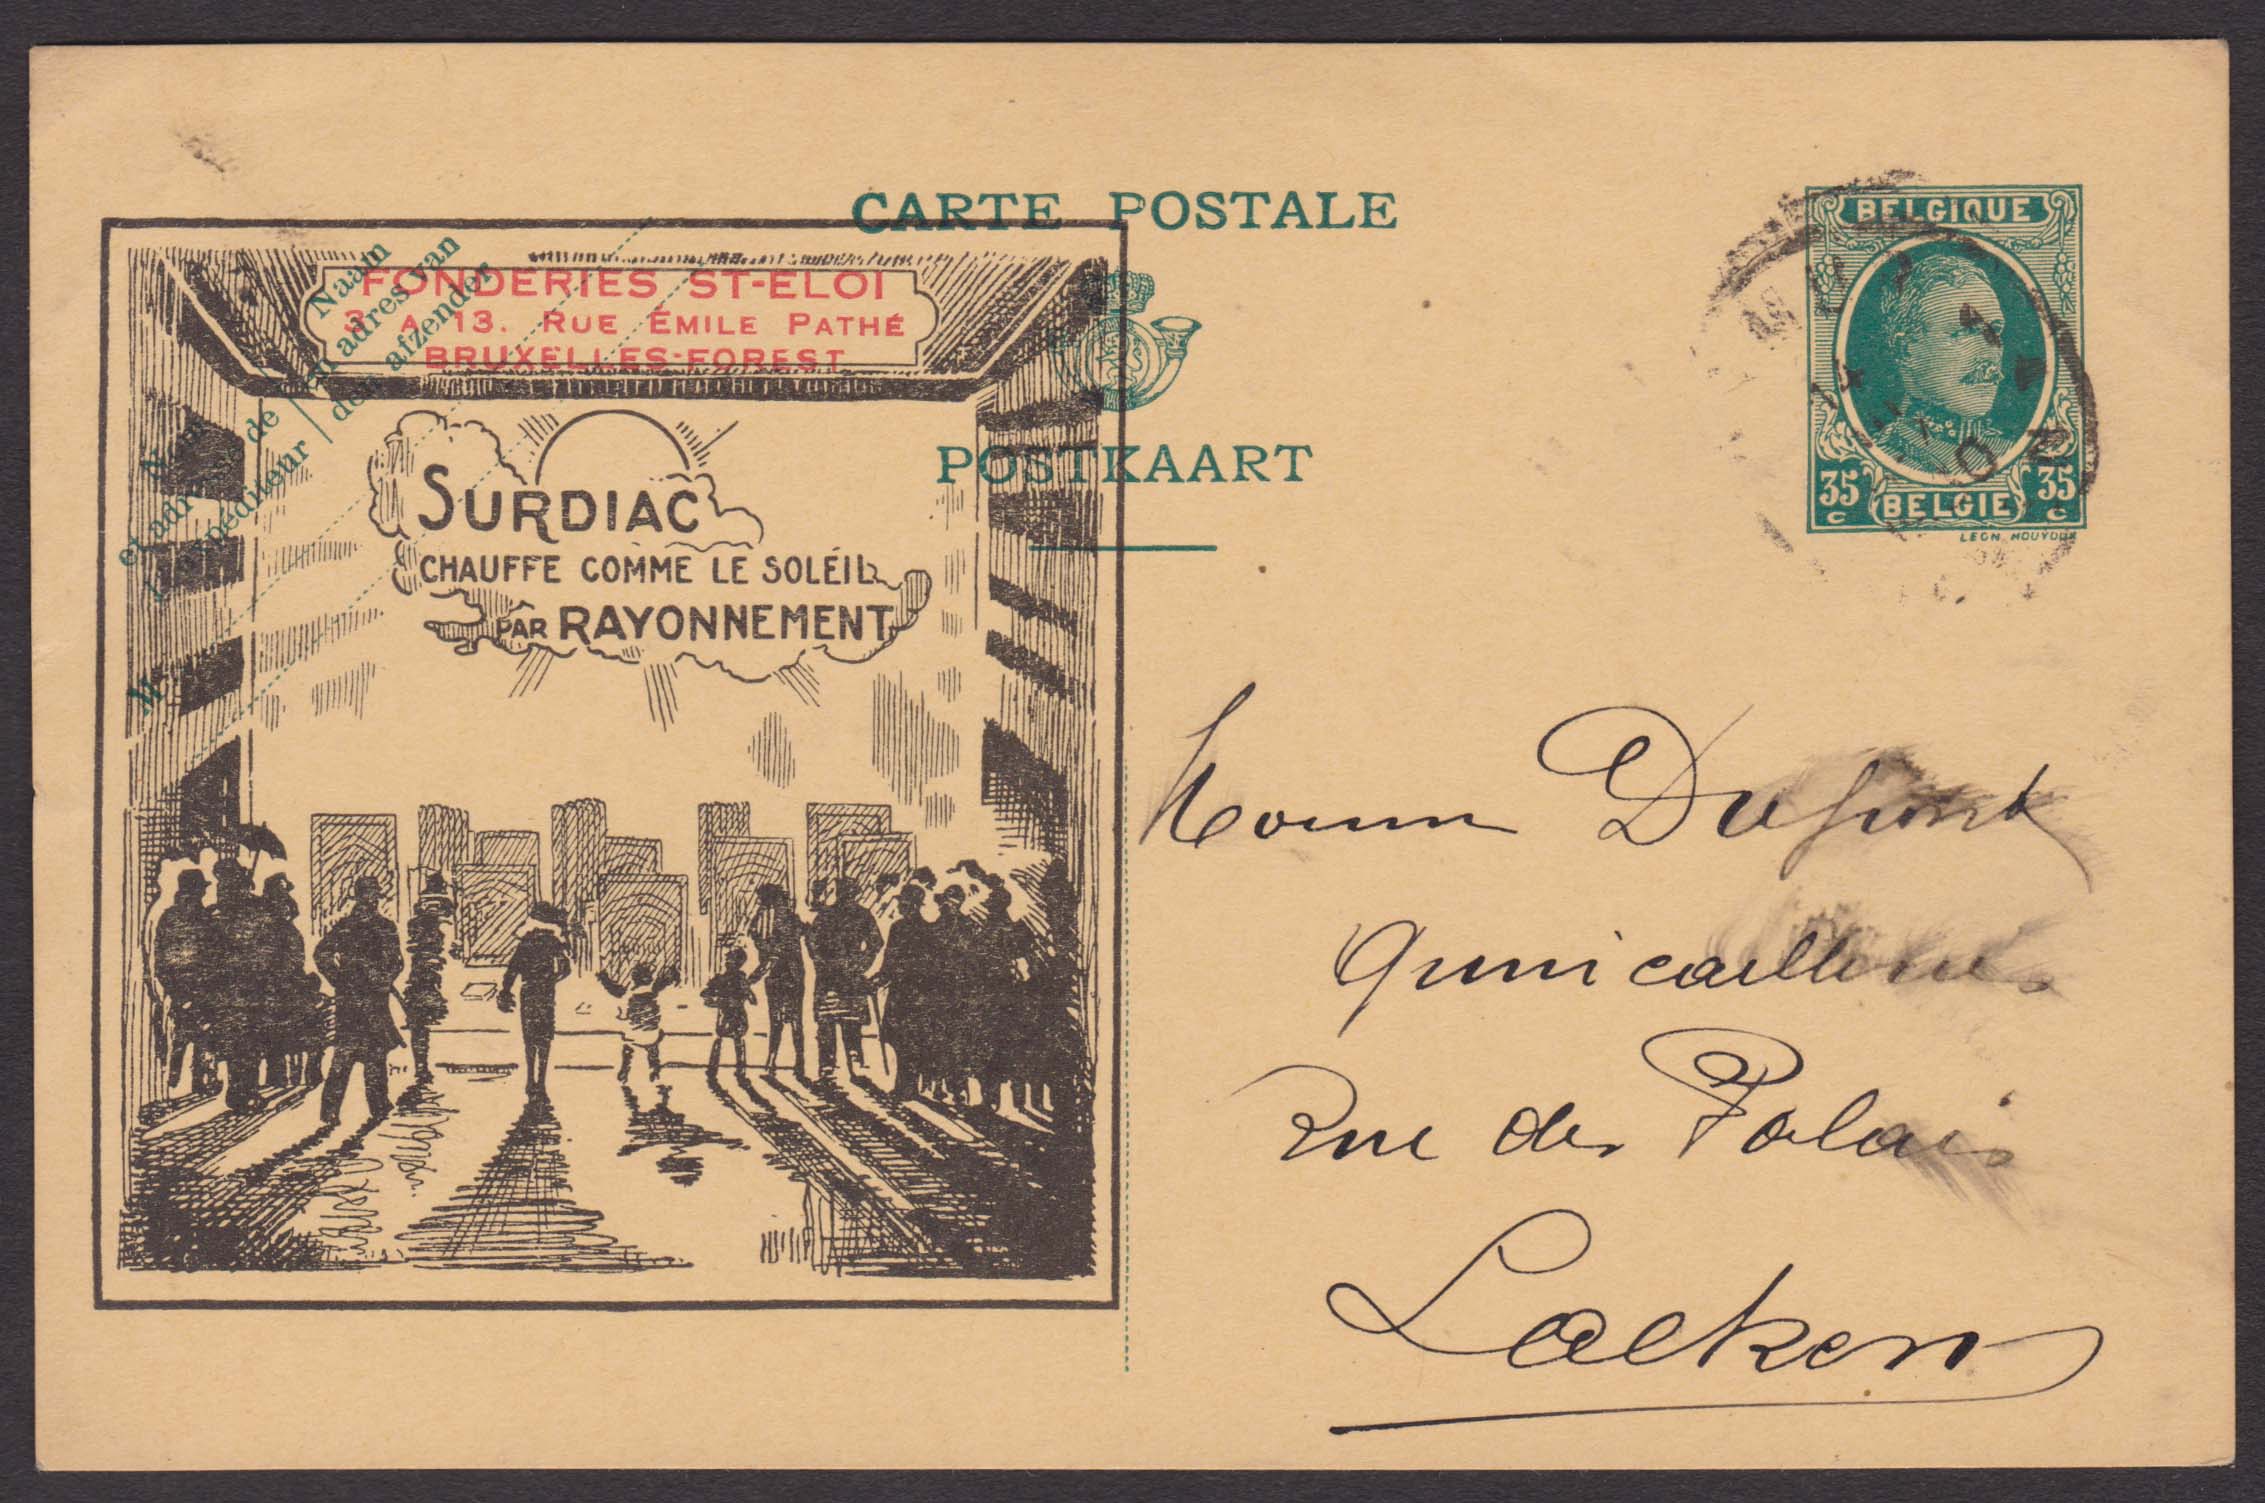 CARTE POSTALE
POSTKAART
FONDERIES ST-ELOI
3 A 13. RUE ÉMILE PATHÉ
BRUXELLES-FOREST
Naam
en adres van
den afzender
Nom
et adresse de
l'expéditeur
M
SURDIAC
CHAUFFE COMME LE SOLÉIL
PAR RAYONNEMENT
BELGIQUE
35 c BELGIE 35 c
LEON HOUYOUX
Dupont
Rue des Palais
Laeken